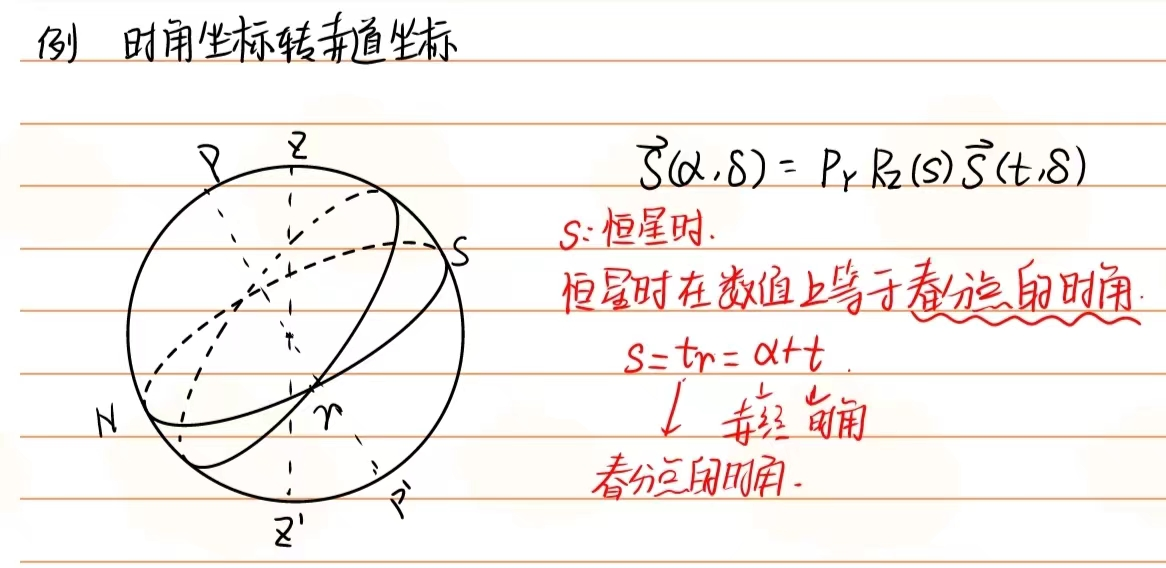 例 时角坐标转赤道坐标
P Z
S
N
r
P'
Z'
S⃗(α,δ) = P_Y R_Z(s) S⃗(t,δ)
S: 恒星时.
恒星时在数值上等于春分点的时角.
S = t_r = α + t.
赤经 时角
春分点的时角.